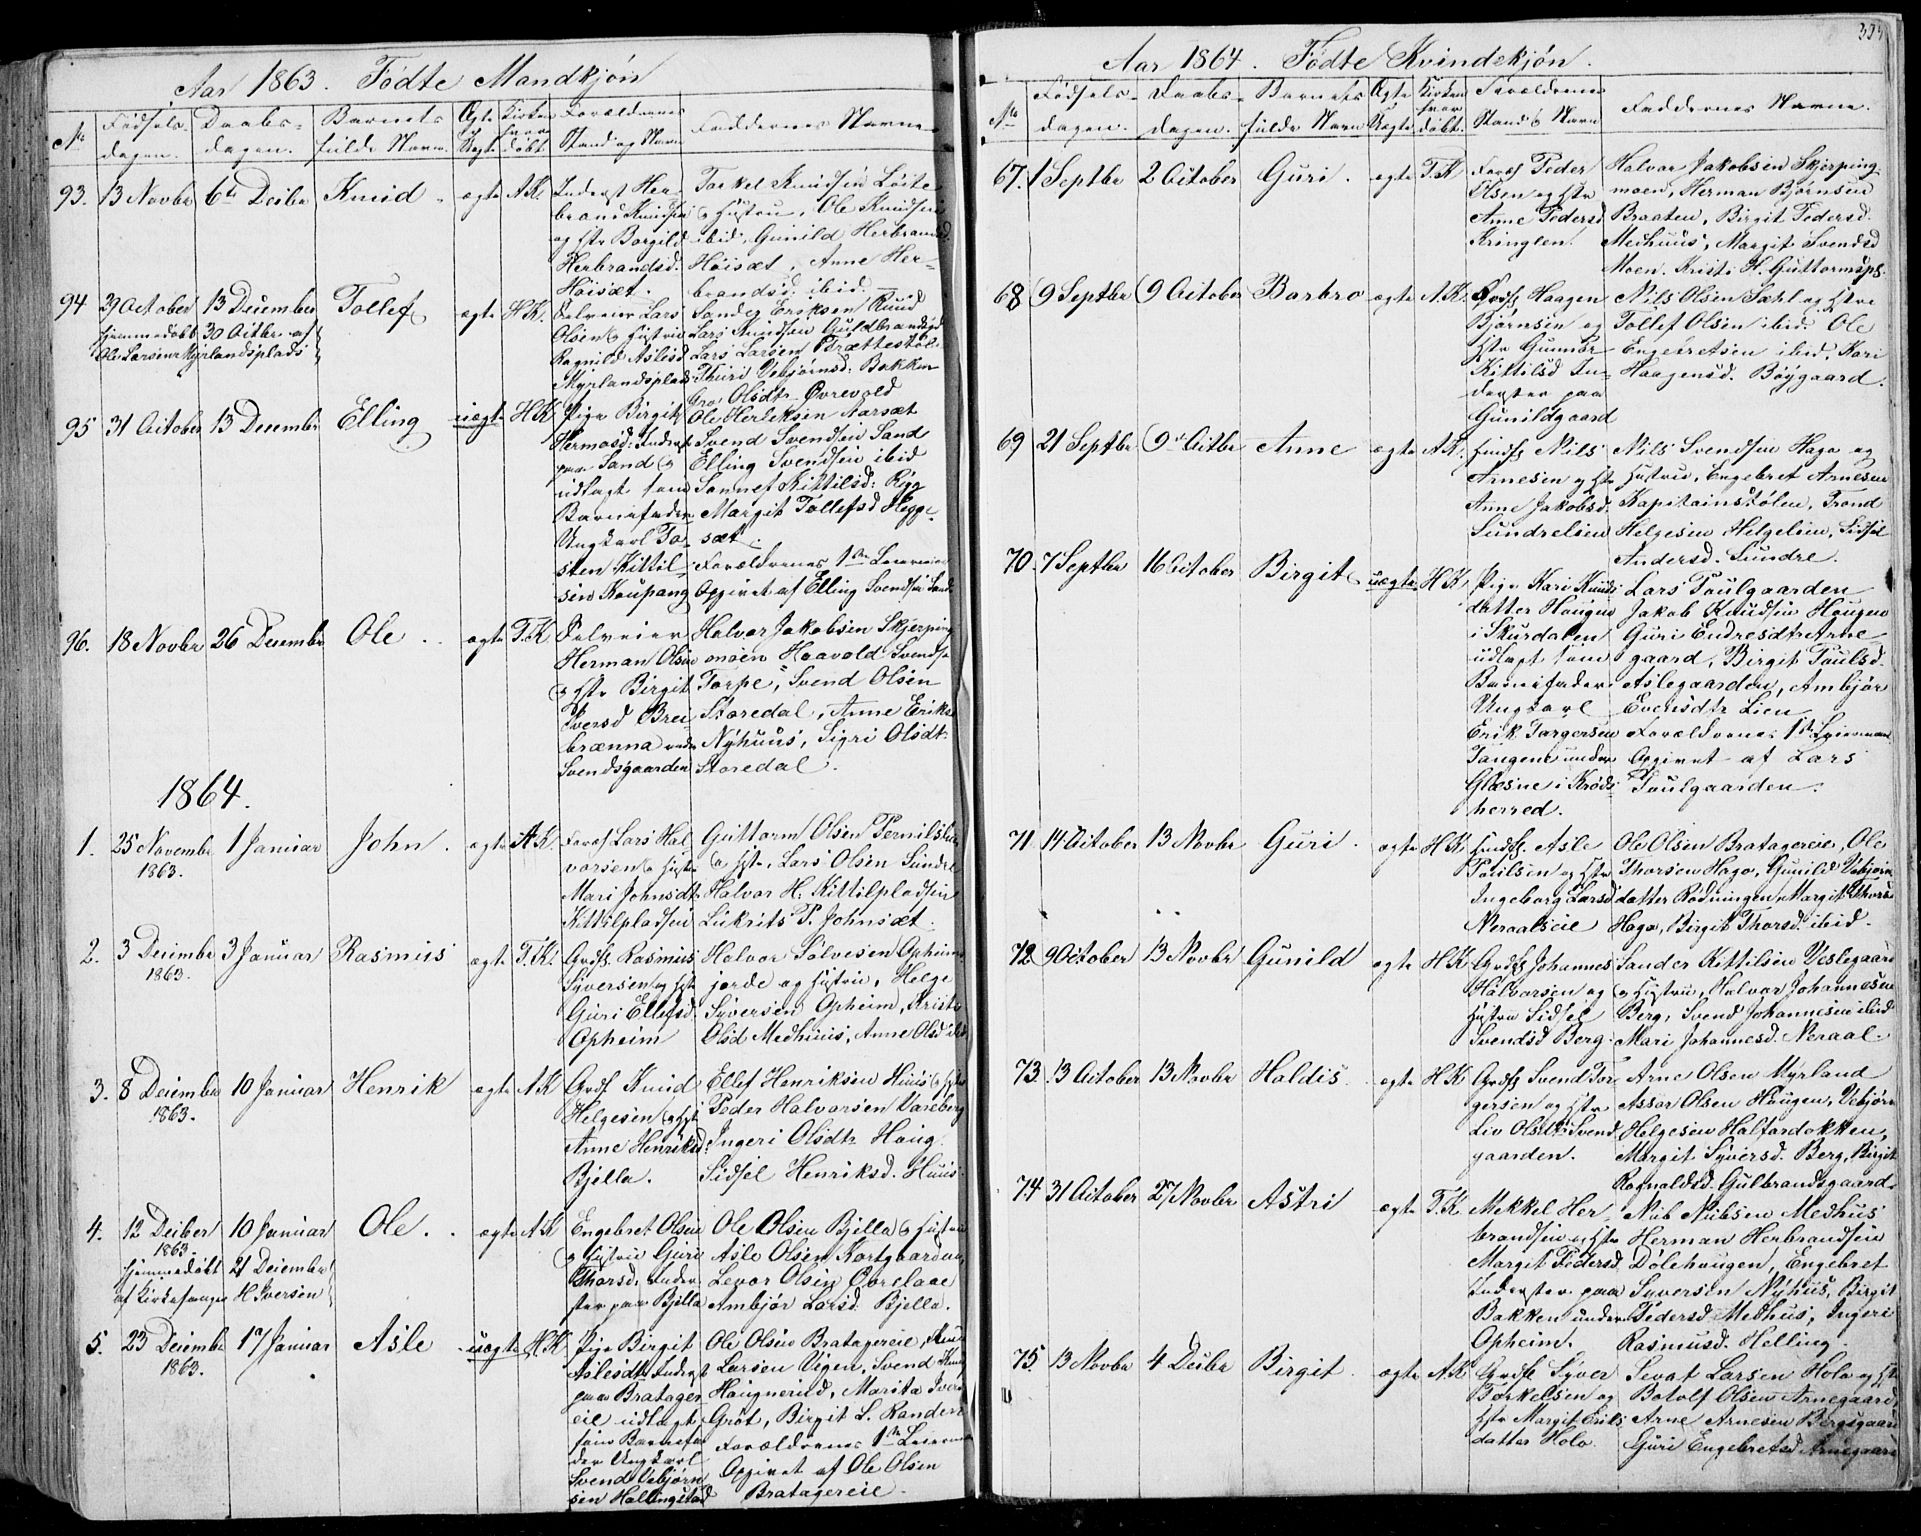 Aar 1863. Fødte Mandkjøn
No
Fødsels-
dagen.
Daabs-
dagen.
Barnets
fulde Navn.
Ægte
Uægte
Kirken
hvor
døbt
Forældrenes
Stand og Navn
Faddernes Navne
93. 13 Novbr 6te Decbr Knud ægte A.K.
Inderst Her-
brand Knudsen
og Hstr Borgild
Herbrandsd.
Høisæt.
Torkel Knudsen
Hustru, Ole Knudsen
ibid, Gunild Herbrandsd
Høisæt, Anne Her-
brandsd. ibid.
94 29 October 13 December Tollef ægte H.K.
hjemmedøbt 30 Octbr af
Ole Larsen Myrlandsplads
Selveier Lars
Olsen Hustru
Ragnild Aslesd
Myrlandsplads
Sander Eriksen Ruud
Lars Knudsen Guldbrandsgd
Lars Larsen Brættestøl
Thuri Vebjørnsd. Bakken
Olsdtr Øvrevold
95 31 October 13 December Elling uægte H.K
Pige Birgit
Hermosd. Inderst
paa Sand
udlagt som
Barnefader
Ungkarl Tor-
sten Kittil-
sen Kaupang
Ole Herleksen Aarsæt
Svend Svendsen Sand
Elling Svendsen ibid
Sonnef Kittilsd. Rigg
Margit Tollefsd Hegge-
sæt.
Forældrenes 1ste Leiermaal
Opgivet af Elling Svendsen Sand
96. 18 Novbr 26 Decembr Ole ægte T.K
Selveier
Herman Olsen
Hstr Birgit
Iversd Brei
brænna under
Svendsgaarden
Halvor Jakobsen Skjerping
moen Haavold Svendsen
Torpe, Svend Olsen
Storedal, Anne Eriksd
Nÿhuus, Sigri Olsdtr
Storedal.
1864.
1. 25 Novembr 1 Januar John. ægte A K.
1863.
Lars Hal
vorsen Hustru
Mari Johnsdtr
Kittilpladsen
Guttorm Olsen
Hstr, Lars Olsen Sundre
Halvor H. Kittilpladsen
Liikrits P. Johnsæt.
2. 3 Decembr 3 Januar Rasmus ægte T.K.
1863.
Grdf. Rasmus
Syversen og Hst
Guri Ellefsd.
Opheim
Halvor Sølvesen Opheims
jorde og Hustru, Helge
Syversen Opheim, Kristi
Olsd Medhuus, Anne Olsd ibid
3. 8 Decembr 10 Januar Henrik ægte A K
1863.
Grdf Knud
Helgesen Hst
Anne Henriksd.
Bjella.
Ellef Henriksen Huus Hstr
Peder Halvorsen Vareberg
Ingeri Olsdtr Haug.
Sidsel Henriksd. Huus.
4. 12 Decbr 10 Januar Ole. ægte A K
1863.
hjemmedøbt 21 December
af Kirkesanger H. Iversen
Engebret Olsen
Hustru Guri
Thorsd. Inder
ster paa Bjella
Ole Olsen Bjella Hustru
Asle Olsen Kortgaarden
Levor Olsen Øvrelaae
Ambjør Larsd. Bjella.
5. 23 Decembr 17 Januar Asle uægte H K
1863.
Pige Birgit
Aslesdtr Inderst
paa Bratager
eie udlagt
som Barnefa
der Ungkarl
Svend Vebjørn
sen Hallingstad
Ole Olsen Bratagereie, Knud
Larsen Vigen, Svend Knuds
Haugnerud, Marita Ivers
Grøt, Birgit L. Randen
Forældrenes 1ste Leiermaal
Opgivet af Ole Olsen
Bratagereie.
Aar 1864. Fødte Kvindekjøn.
No
Fødsels-
dagen.
Daabs-
dagen.
Barnets
fulde Navn
Ægte
Uægte
Kirken
hvor
døbt.
Forældrenes
Stand & Navn
Faddernes Navne.
67. 1 Septbr 2 October Guri. ægte T.K
Peder
Olsen og Hstr
Anne Pedersd
Kringlen.
Halvor Jakobsen Skjerping
moen, Herman Bjørnsen
Braaten, Birgit Pedersd.
Medhuus, Margit Svendsd
Moen. Kristi H. Guttormspl.
68 9 Septbr 9 October Barbro ægte A.K
Grdf. Haagen
Bjørnsen og
Hstr Gunnør
Kittilsd In-
derster paa
Gunildgaard
Nils Olsen Sæhl og Hstr
Tollef Olsen ibid. Ole
Engebretsen ibid, Kari
Haagensd. Bøÿgaard.
69 21 Septbr 9 Octbr Anne ægte A K.
Nils
Arnesen Hstr
Anne Jakobsd.
Sundrelien
Nils Svendsen Haga og
Hustru, Engebret Arnesen
Kapitainstølen, Trond
Helgesen Helgelien, Sidsel
Andersd. Sundre.
70. 7 Septbr 16 October Birgit uægte H.K
Pige Kari Knuds
datter Haugen
i Skurdalen
udlagt som
Barnefader
Ungkarl
Erik Torgersen
Tangen under
Glæsne i Krøds
herred.
Lars Poulgaarden
Jakob Knudsen Haugen
Guri Endresdtr Arne
gaard, Birgit Poulsd.
Aslegaarden, Ambjør
Evensdtr Lien
Forældrenes 1ste Leiermaal
Opgivet af Lars
Poulgaarden.
71 14 October 13 Novbr Guri. ægte H K
Asle
Poulsen og Hstr
Ingeborg Larsd
Neraalseie
Ole Olsen Bratagereie, Ole
Thorsen Haga, Gunild Vebjørns
datter Rødningen, Margit Thorsd
Haga, Birgit Thorsd. ibid.
72. 9 October 13 Novbr Gunild ægte H K
Grdf. Johannes
Halvorsen og
Hustru Sidsel
Svendsd Berg.
Sander Kittilsen Veslegaard
Hustru, Halvor Johannesen
Berg, Svend Johannesen ibid
Mari Johannesd. Neraal.
73. 13 October 13 Novbr Haldis. ægte H K
Grdf. Svend Tor
gersen og Hstr
Liv Olsdtr Svend
gaarden.
Arne Olsen Myrland
Assor Olsen Haugen, Vebjørn
Helgesen Halfardokken,
Margit Syversd. Berg, Birgit
Ragnaldsd. Gulbrandsgaard.
74 31 October 27 Novbr Astri ægte T.K
Mekkel Her
brandsen Hstr
Margit Pedersd
Inderster paa
Bakken under
Opheim.
Nub Nubsen Medhus
Herman Herbrandsen
Dølehaugen, Engebret
Syversen Nÿhus, Birgit
Pedersd Medhus, Ingeri
Rasmusd. Helling.
75. 13 Novbr 4 Decbr Birgit. ægte A.K
Grdf. Syver
Torkelsen og
Hstr Margit Eriks
datter Holo.
Sevat Larsen Holo og Hst
Botolf Olsen Arnegaard,
Arne Arnesen Bergsgaard
Guri Engebretsd Arnegaard